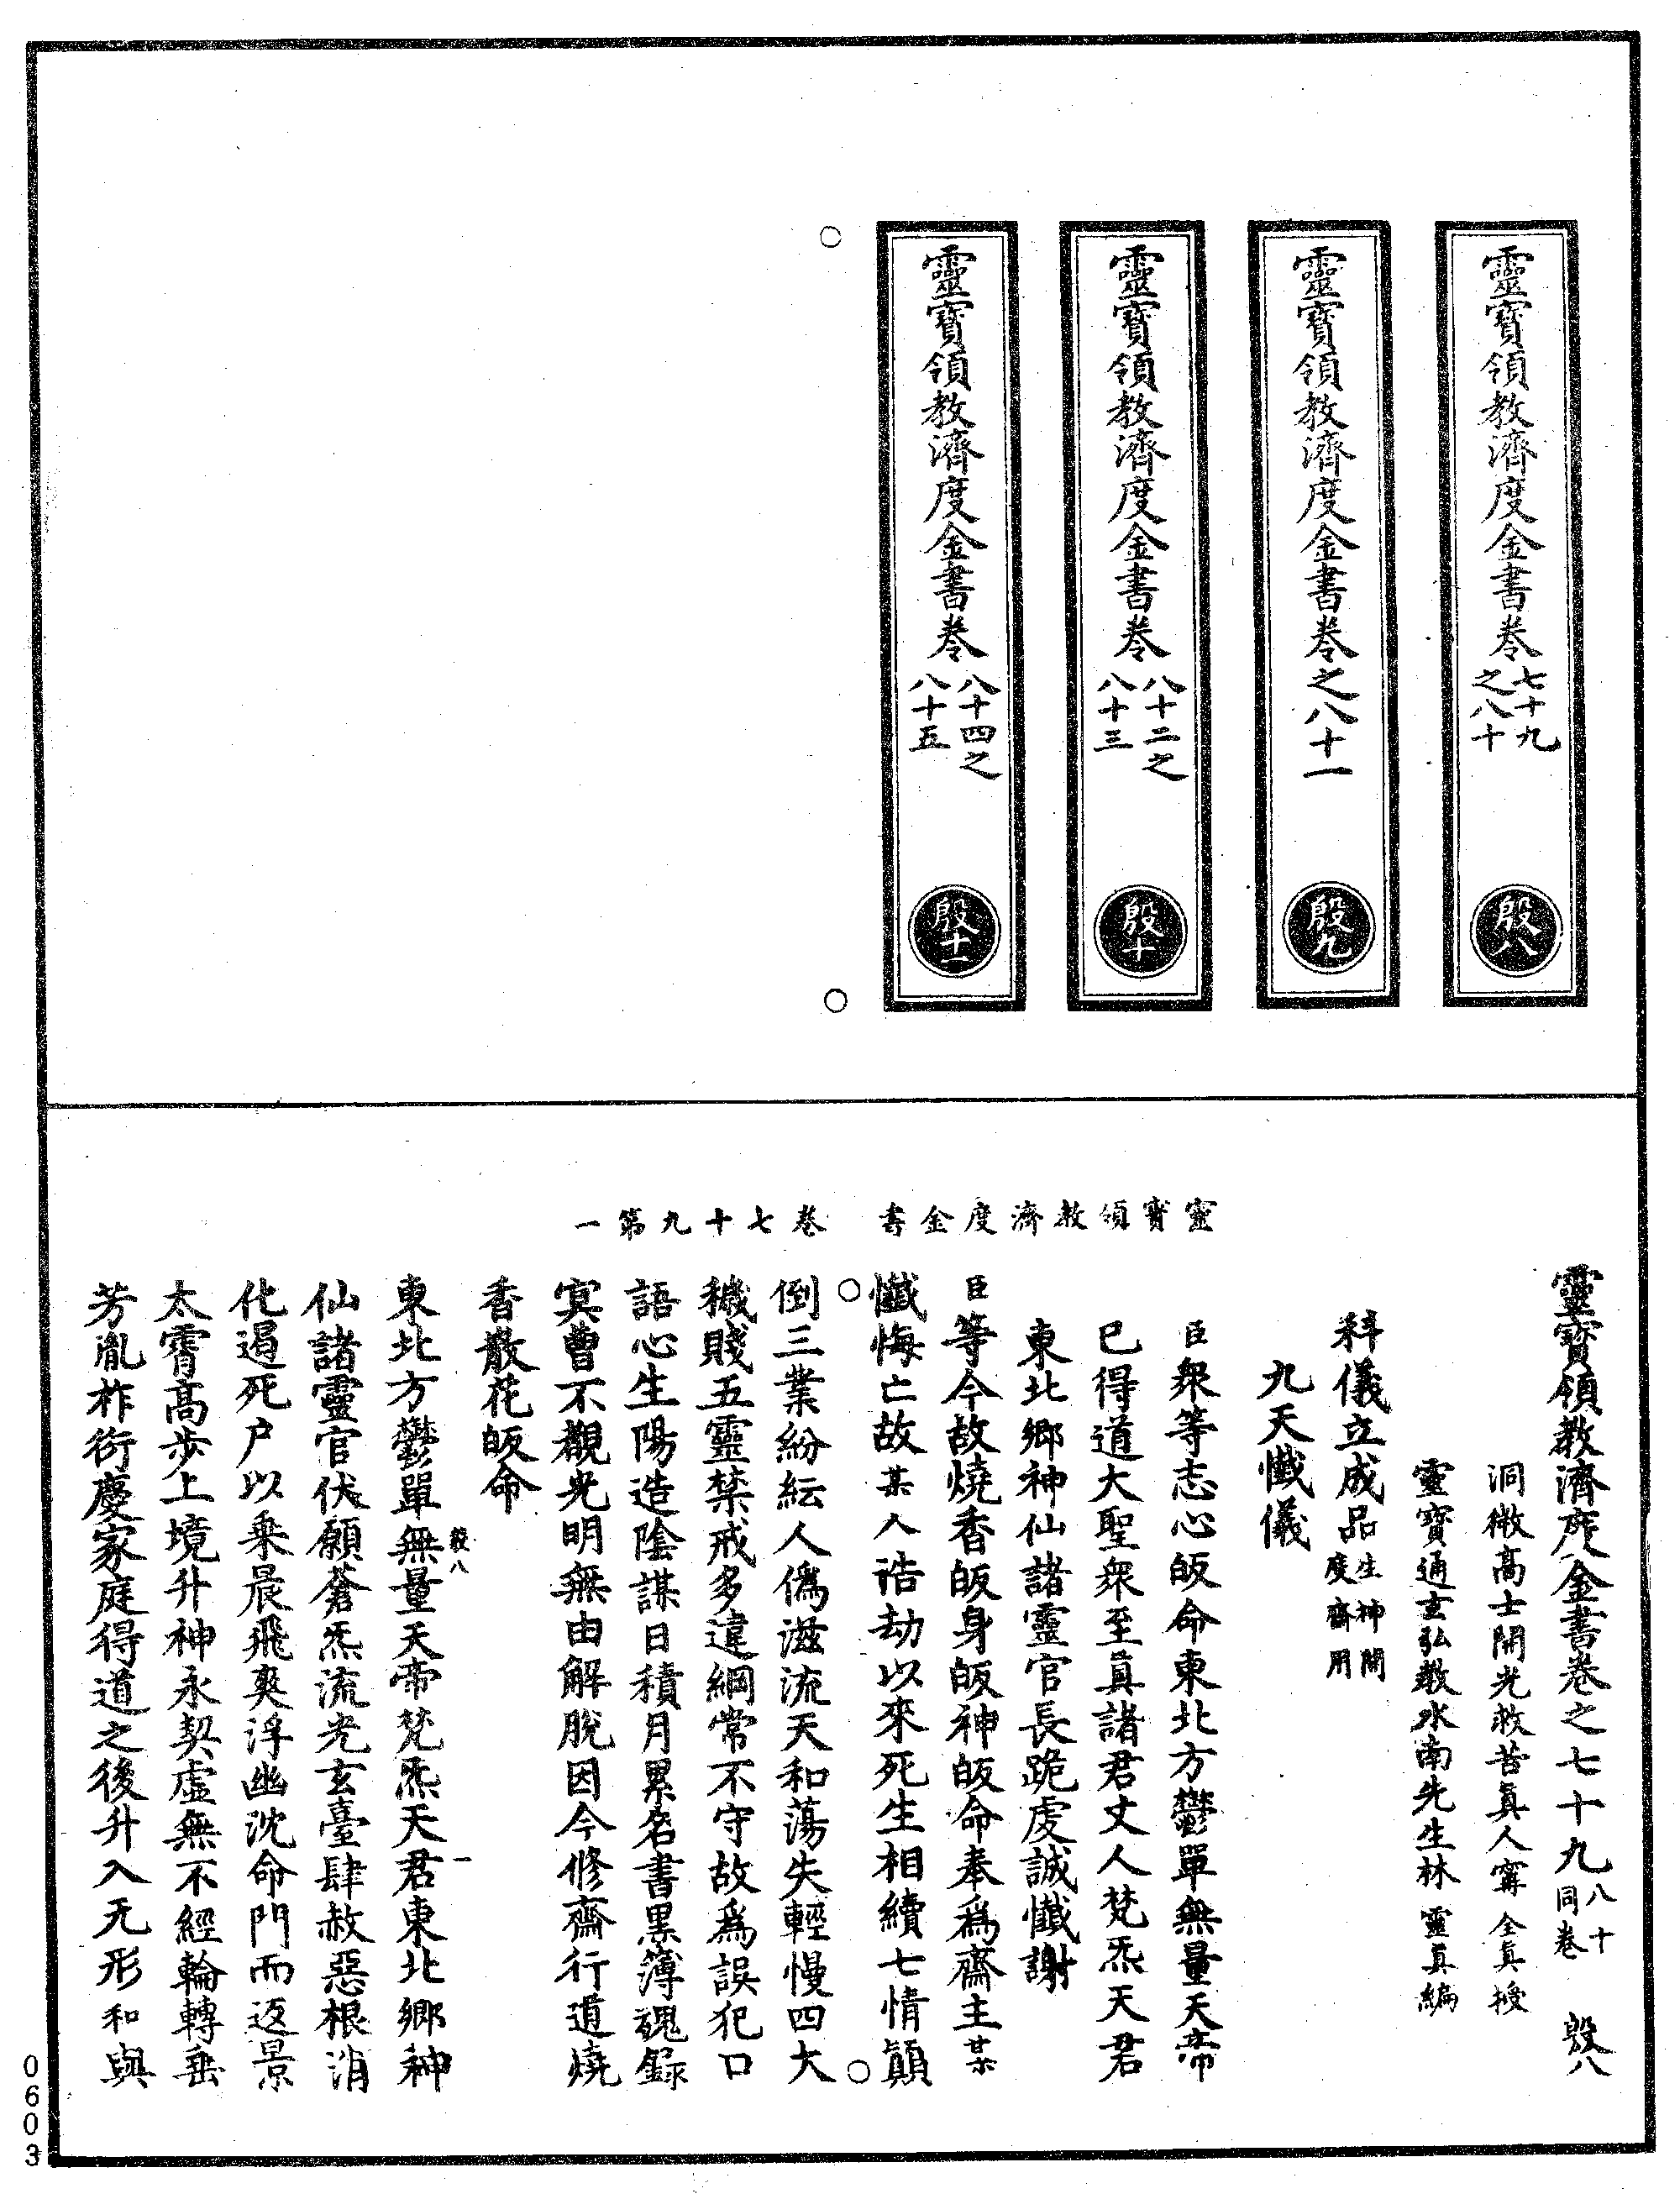 靈寶領教濟度金書卷七十九之八十
殷八
靈寶領教濟度金書卷之八十一
殷九
靈寶領教濟度金書卷八十二之八十三
殷十
靈寶領教濟度金書卷八十四之八十五
殷十一
靈寶領教濟度金書 卷七十九第一
靈寶領教濟度金書卷之七十九 八十同卷 殷八
洞微高士開光救苦真人甯全真授
靈寶通玄弘教水南先生林靈真編
科儀立成品 生神開度齋用
九天懺儀
臣衆等志心皈命東北方鬱單無量天帝
已得道大聖衆至真諸君丈人梵炁天君
東北鄉神仙諸靈官長跪虔誠懺謝
臣等今故燒香皈身皈神皈命奉爲齋主某
懺悔亡故某人浩劫以來死生相續七情顛
倒三業紛紜人僞滋流天和蕩失輕慢四大
穢賤五靈禁戒多違綱常不守故爲誤犯口
語心生陽造陰謀日積月累名書黑簿魂錄
冥曹不覩光明無由解脫因今修齋行道燒
香散花皈命
東北方鬱單無量天帝梵炁天君東北鄉神
殷八 一
仙諸靈官伏願蒼炁流光玄臺肆赦惡根消
化遏死户以乘晨飛爽浮幽沈命門而返景
太霄高步上境升神永契虛無不經輪轉垂
芳胤祚衍慶家庭得道之後升入无形和與
0603